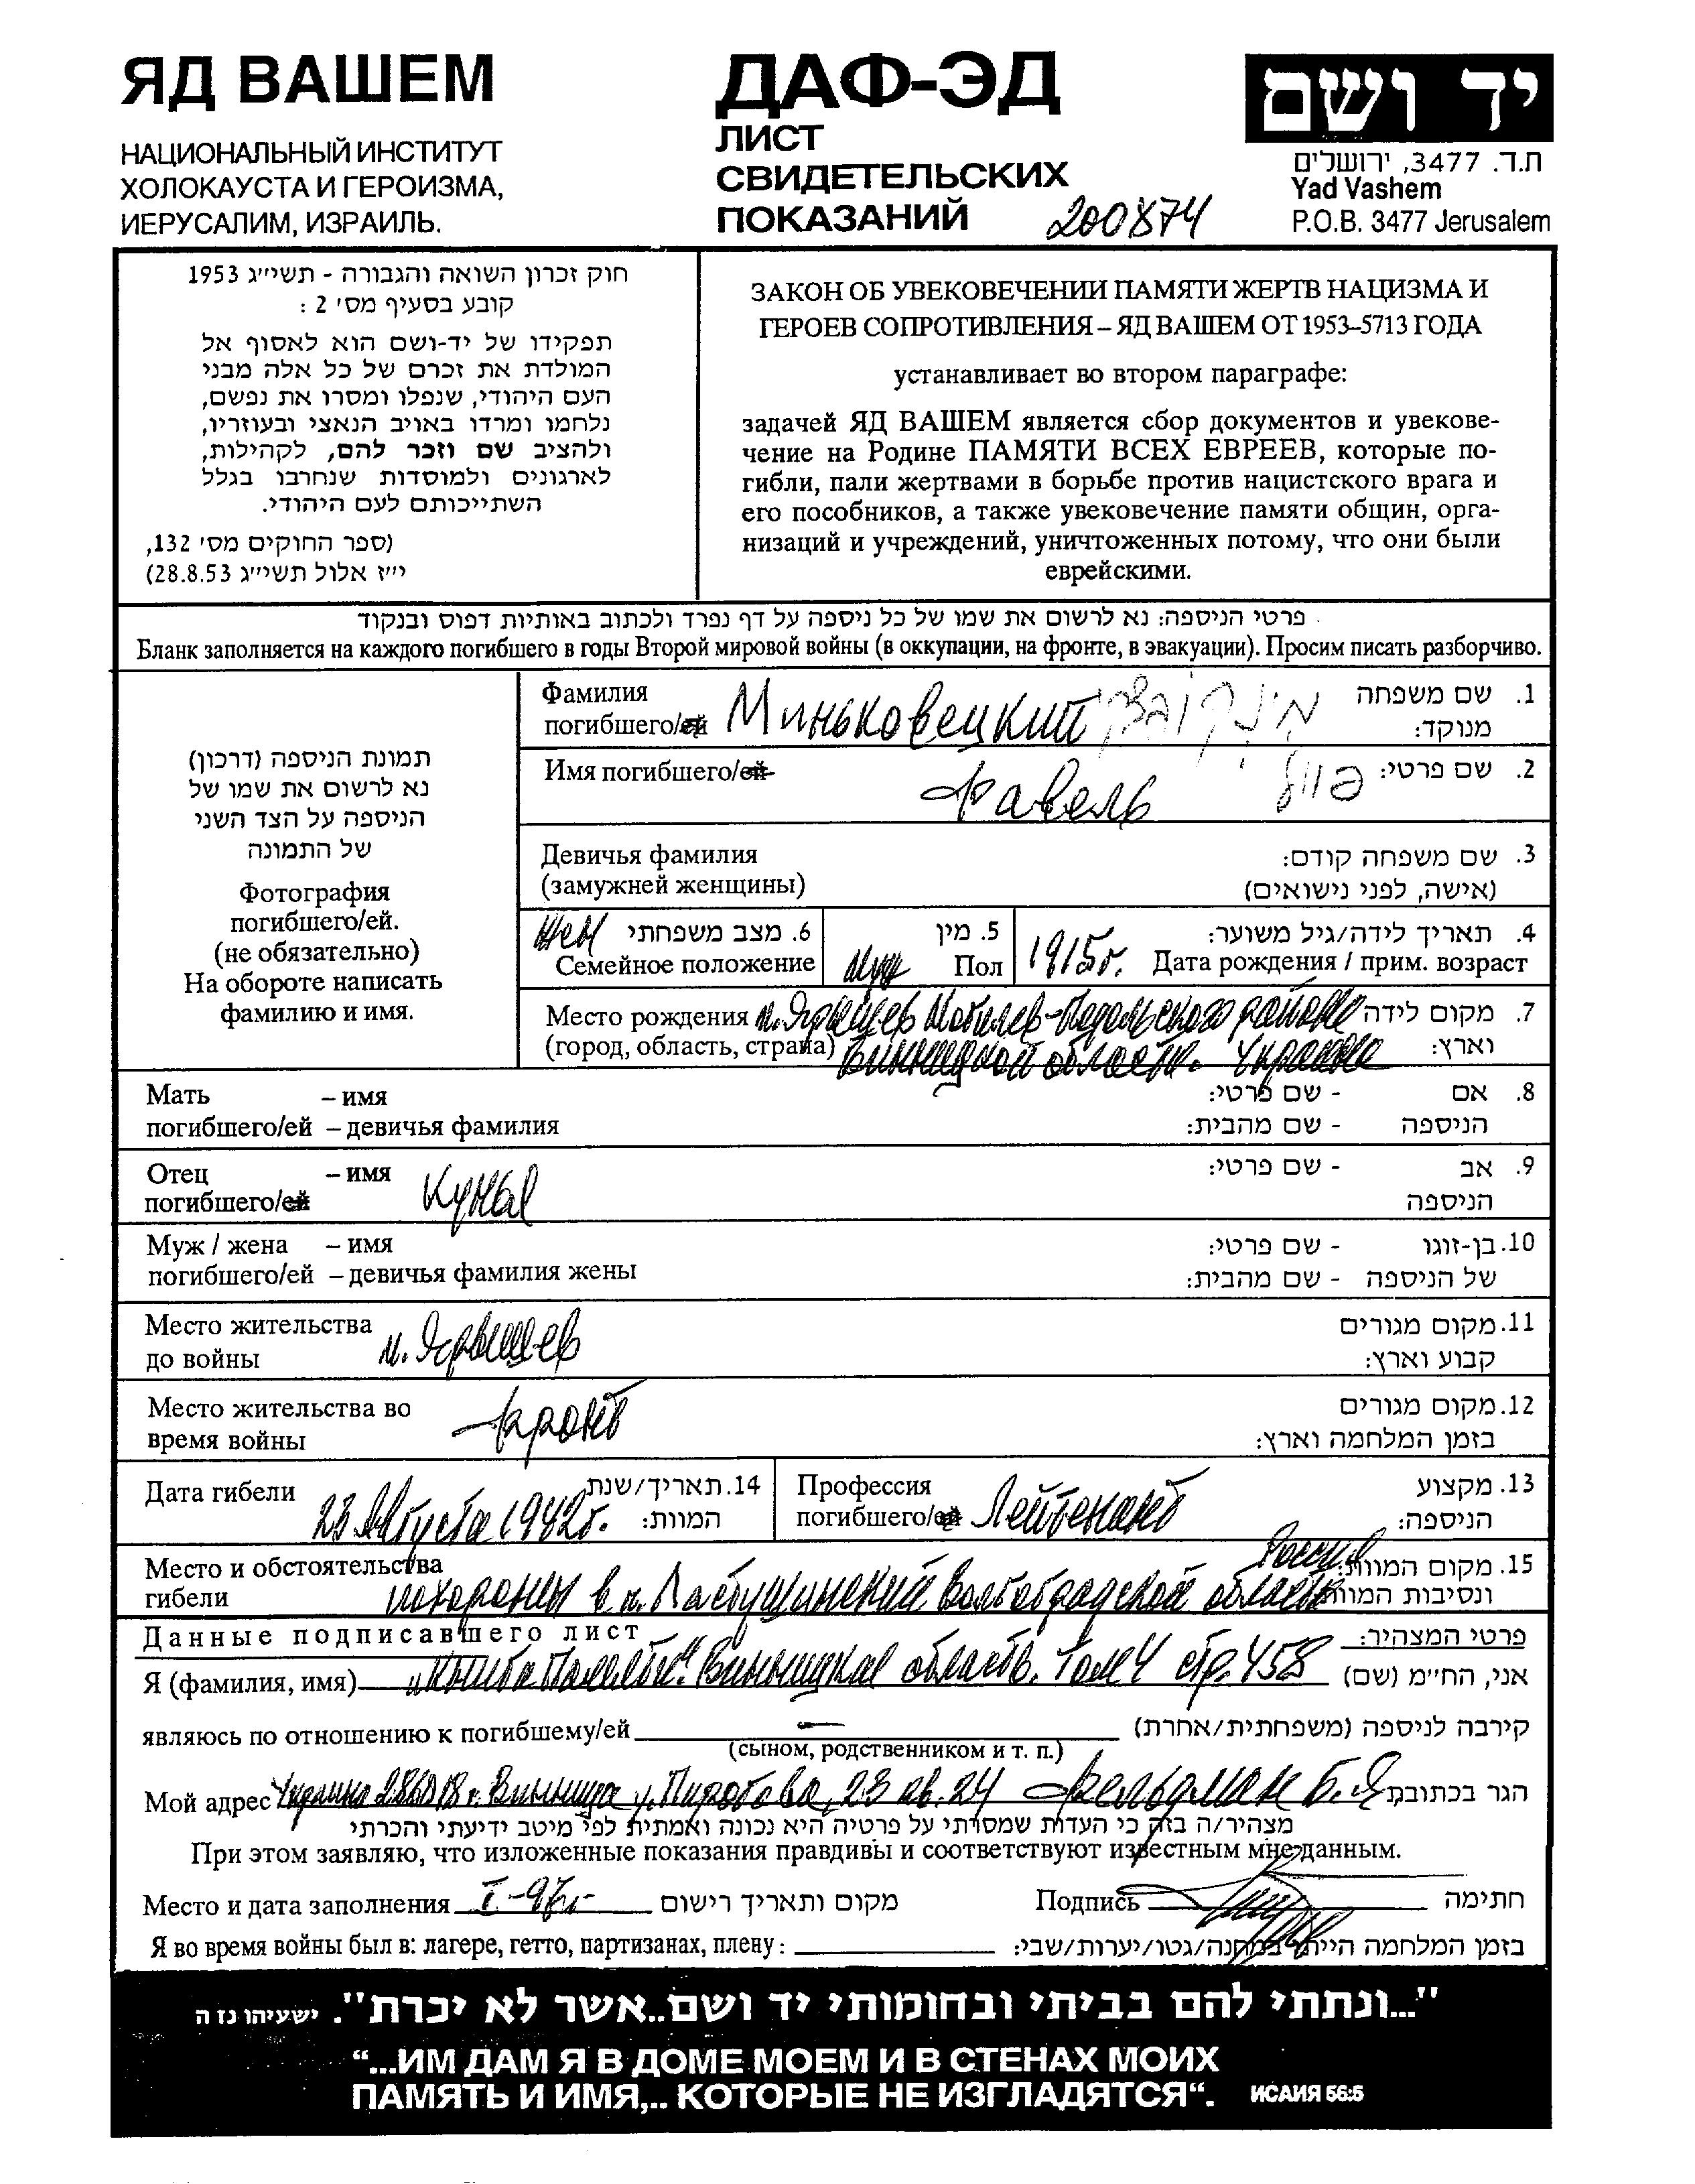 ЯД ВАШЕМ
НАЦИОНАЛЬНЫЙ ИНСТИТУТ
ХОЛОКАУСТА И ГЕРОИЗМА,
ИЕРУСАЛИМ, ИЗРАИЛЬ.
ДАФ-ЭД
ЛИСТ
СВИДЕТЕЛЬСКИХ
ПОКАЗАНИЙ 200874
יד ושם
ת.ד. 3477, ירושלים
Yad Vashem
P.O.B. 3477 Jerusalem
חוק זכרון השואה והגבורה - תשי״ג 1953
קובע בסעיף מס׳ 2 :
תפקידו של יד-ושם הוא לאסוף אל
המולדת את זכרם של כל אלה מבני
העם היהודי, שנפלו ומסרו את נפשם,
נלחמו ומרדו באויב הנאצי ובעוזריו,
ולהציב שם וזכר להם, לקהילות,
לארגונים ולמוסדות שנחרבו בגלל
השתייכותם לעם היהודי.
(ספר החוקים מס׳ 132,
י״ז אלול תשי״ג 28.8.53)
ЗАКОН ОБ УВЕКОВЕЧЕНИИ ПАМЯТИ ЖЕРТВ НАЦИЗМА И
ГЕРОЕВ СОПРОТИВЛЕНИЯ – ЯД ВАШЕМ ОТ 1953–5713 ГОДА
устанавливает во втором параграфе:
задачей ЯД ВАШЕМ является сбор документов и увекове-
чение на Родине ПАМЯТИ ВСЕХ ЕВРЕЕВ, которые по-
гибли, пали жертвами в борьбе против нацистского врага и
его пособников, а также увековечение памяти общин, орга-
низаций и учреждений, уничтоженных потому, что они были
еврейскими.
פרטי הניספה: נא לרשום את שמו של כל ניספה על דף נפרד ולכתוב באותיות דפוס ובנקוד
Бланк заполняется на каждого погибшего в годы Второй мировой войны (в оккупации, на фронте, в эвакуации). Просим писать разборчиво.
תמונת הניספה (דרכון)
נא לרשום את שמו של
הניספה על הצד השני
של התמונה
Фотография
погибшего/ей.
(не обязательно)
На обороте написать
фамилию и имя.
Фамилия 1. שם משפחה
погибшего/ей Миньковецкий מינקובצקי מנוקד:
Имя погибшего/ей Фавель פוול 2. שם פרטי:
Девичья фамилия 3. שם משפחה קודם:
(замужней женщины) (אישה, לפני נישואים)
Жен 6. מצב משפחתי 5. מין 4. תאריך לידה/גיל משוער:
Семейное положение Муж Пол 1915г. Дата рождения / прим. возраст
Место рождения м. Ярышев Могилев-Подольского района 7. מקום לידה
(город, область, страна) Винницкой области. Украина וארץ:
Мать – имя 8. אם - שם פרטי:
погибшего/ей – девичья фамилия הניספה - שם מהבית:
Отец – имя Куны 9. אב - שם פרטי:
погибшего/ей הניספה
Муж / жена – имя 10. בן-זוגו - שם פרטי:
погибшего/ей – девичья фамилия жены של הניספה - שם מהבית:
Место жительства м. Ярышев 11. מקום מגורים
до войны קבוע וארץ:
Место жительства во Фронт 12. מקום מגורים
время войны בזמן המלחמה וארץ:
Дата гибели 23 Августа 1942г. 14. תאריך/שנת המוות:
Профессия 13. מקצוע
погибшего/ей Лейтенант הניספה:
Место и обстоятельства Россия 15. מקום המוות
гибели похоронен в п. Волгоградской области ונסיבות המוות
Данные подписавшего лист פרטי המצהיר:
Я (фамилия, имя) "Книга Памяти". Винницкая область. Том 4 стр. 458 אני, הח״מ (שם)
являюсь по отношению к погибшему/ей — קירבה לניספה (משפחתית/אחרת)
(сыном, родственником и т. п.)
Мой адрес Украина 286018 г. Винница у. Пирогова, 23 кв. 24 Фельдман Б. Я. הגר בכתובת
מצהיר/ה בזה כי העדות שמסרתי על פרטיה היא נכונה ואמתית לפי מיטב ידיעתי והכרתי
При этом заявляю, что изложенные показания правдивы и соответствуют известным мне данным.
Место и дата заполнения I-97г. מקום ותאריך רישום Подпись חתימה
Я во время войны был в: лагере, гетто, партизанах, плену: בזמן המלחמה הייתי במחנה/גטו/יערות/שבי:
"...ונתתי להם בביתי ובחומותי יד ושם..אשר לא יכרת". ישעיהו נז ה
“...ИМ ДАМ Я В ДОМЕ МОЕМ И В СТЕНАХ МОИХ
ПАМЯТЬ И ИМЯ,.. КОТОРЫЕ НЕ ИЗГЛАДЯТСЯ“. ИСАИЯ 56:5